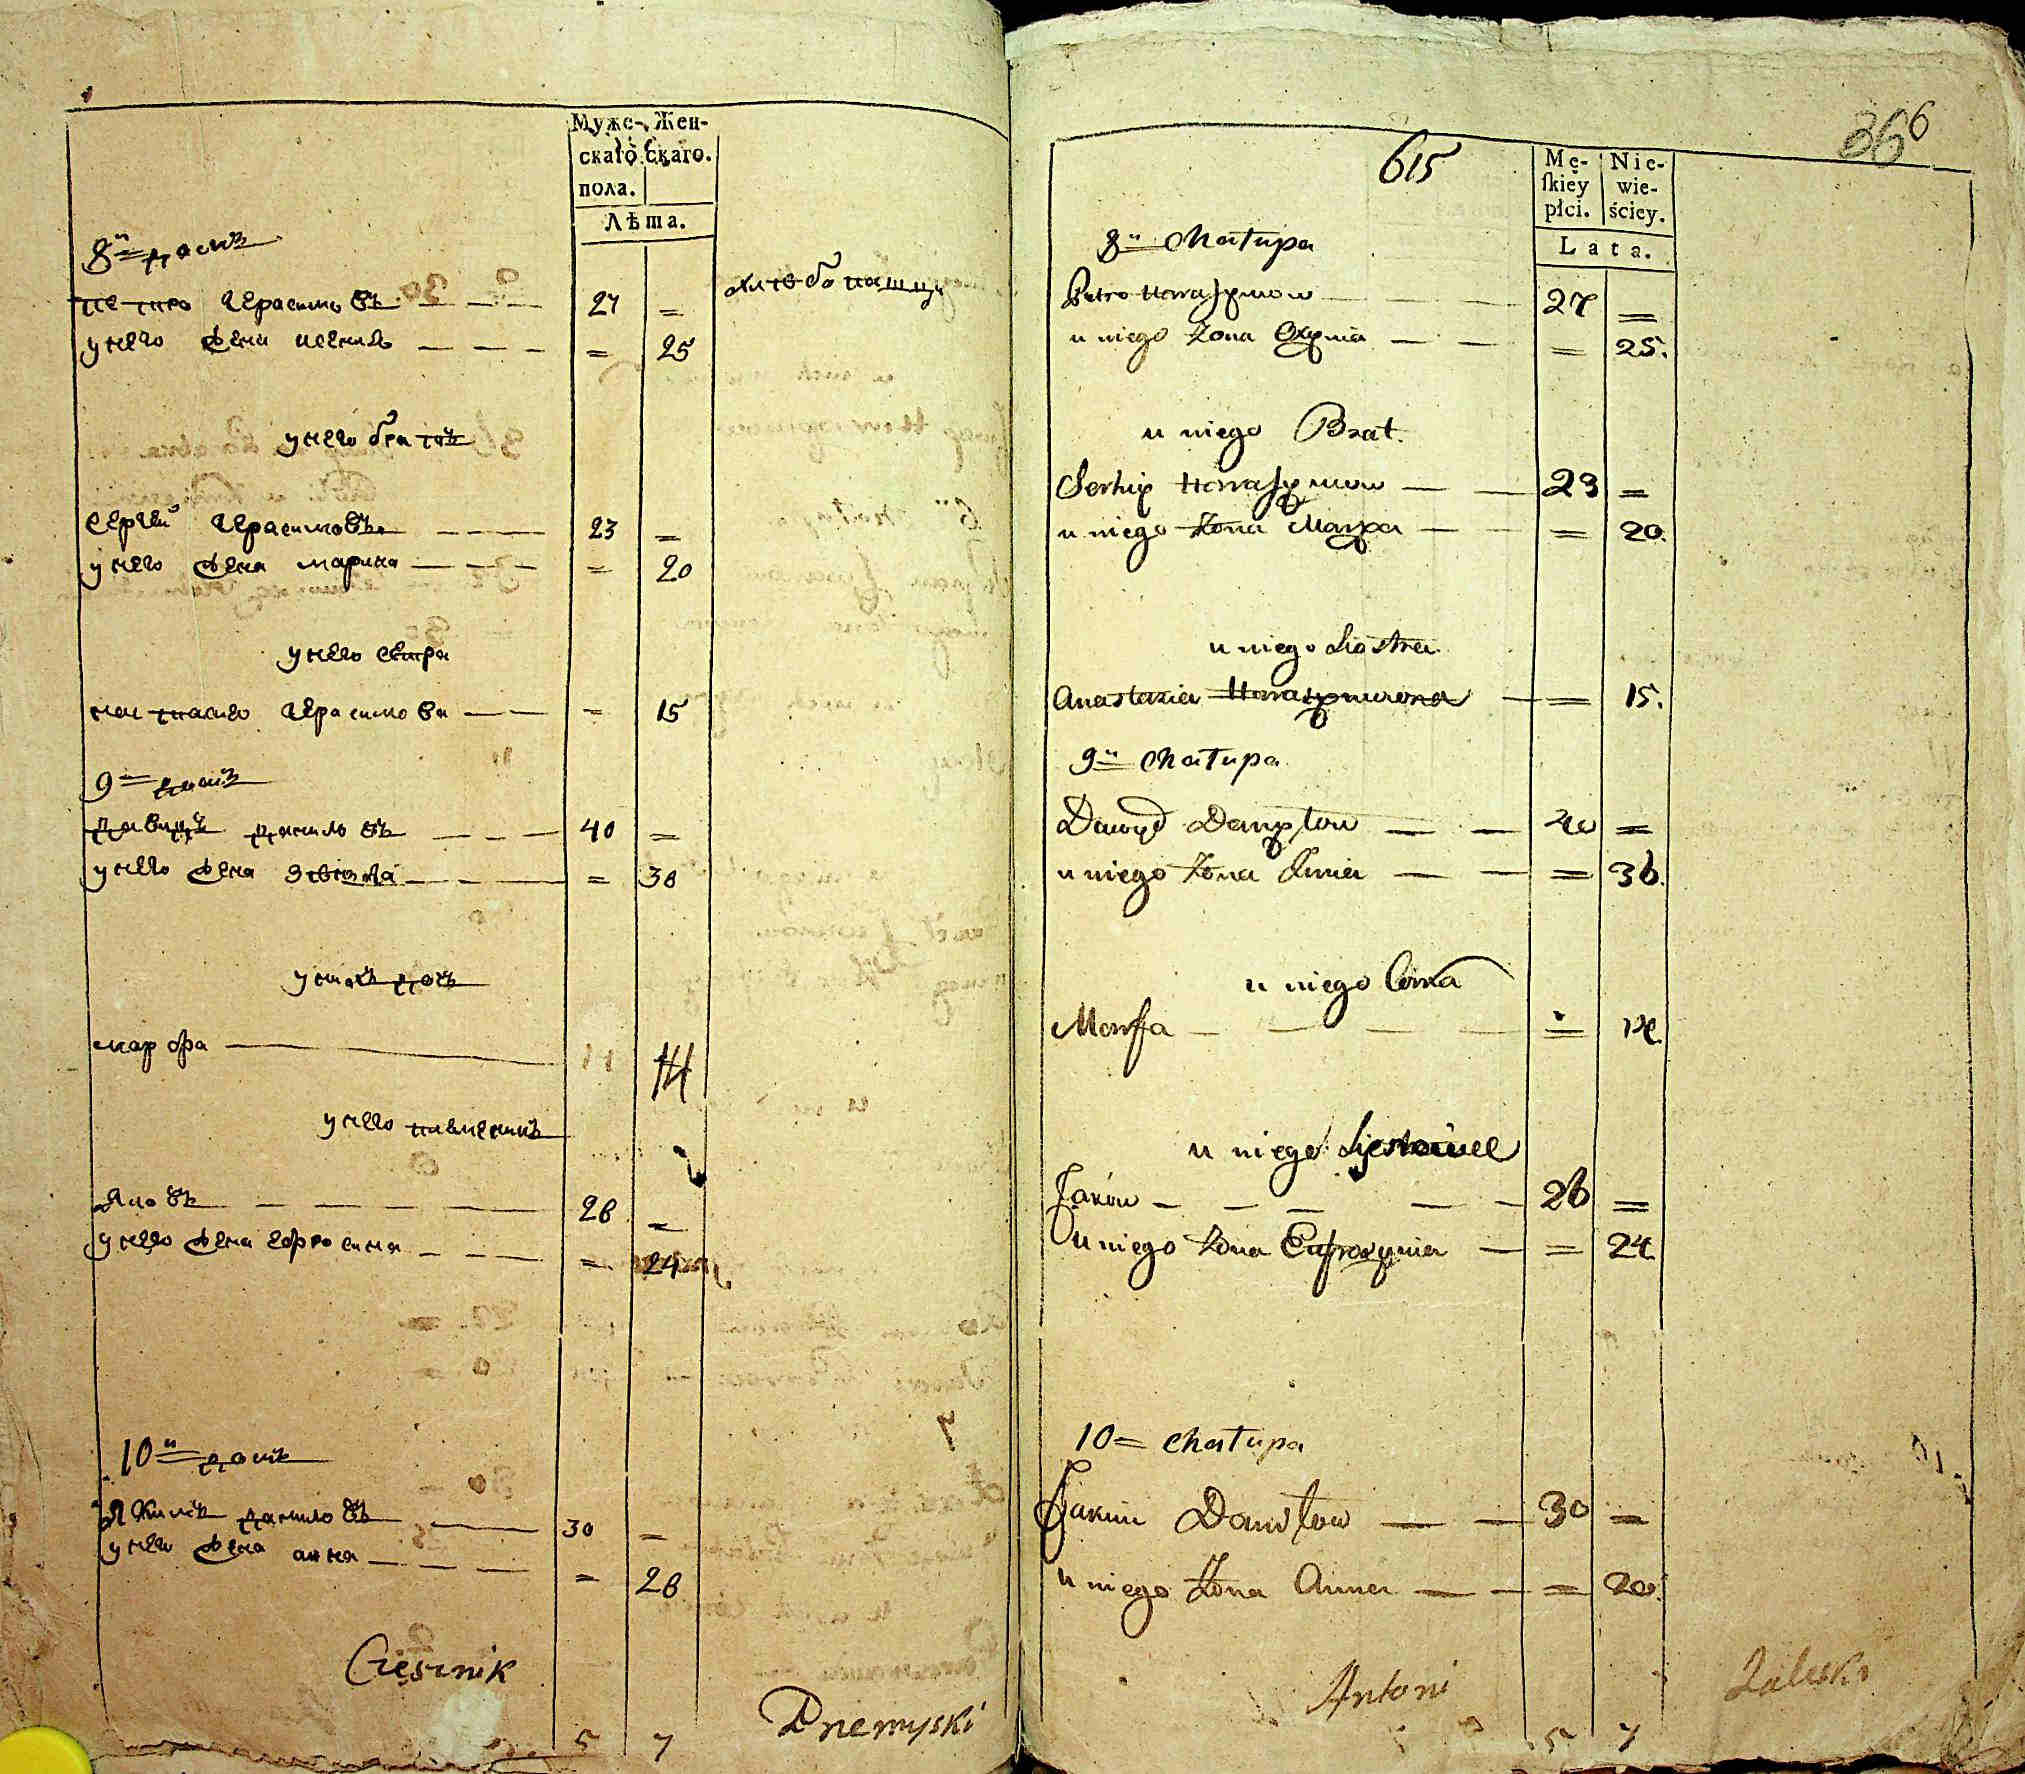 Муже- Жен-
скаго скаго.
пола.
Лѣта.
8й домъ
петро герасимовъ — — — 27 =
у него жена ксения — — — = 25
у него братъ
сергей герасимовъ — — — 23 =
у него жена марина — — — = 20
у него сестра
настасия герасимова — — = 15
9 домъ
давидъ даниловъ — — — 40 =
у него жена — — — = 36
у нихъ дочь
марфа — 14
у него племеникъ
Яковъ — — — 26 =
у него жена ефросиня — — — = 24
10й домъ
Якимъ даниловъ — 30 =
у него жена анна — — — = 26
Cześnik
Przemyski
5 7
366
615
Mę- Nie-
skiey wie-
płci. ściey.
Lata.
8a Chałupa
Petro Harasymow — — — 27 =
u niego Żona Oxynia — — = 25.
u niego Brat.
Serhiy Harasymow — — 23 =
u niego Żona Maryna — — = 20.
u niego Siostra
Anastazia Harasymowna — = 15.
9a Chałupa
Dawyd Daniłow — — 40 =
u niego Żona — — = 36.
u niego Corka
Marfa — — — — = 14.
u niego
Jakow — — — — — 26 =
u niego Żona Eufrozynia — = 24.
10 = Chałupa
Jakim Daniłow — — 30 =
u niego Żona Anna — — = 20.
Antoni Zaleski
5 7